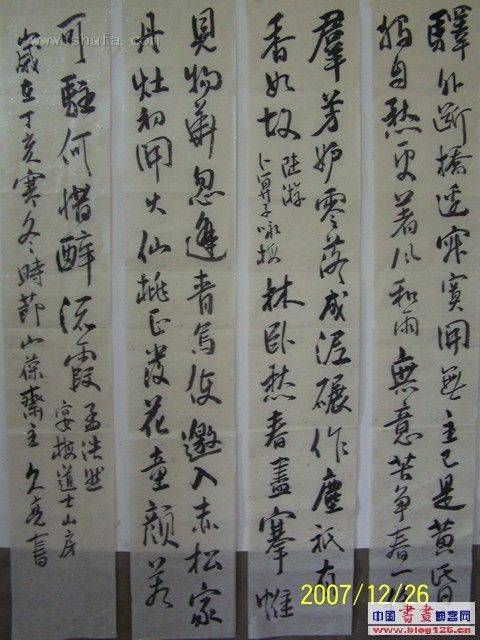 驛外斷橋邊寂寞開無主已是黃昏
獨自愁更著風和雨無意苦爭春一任
羣芳妒零落成泥碾作塵祇有
香如故
陸游
卜算子咏梅
林臥愁春盡搴帷
見物華忽逢青鳥使邀入赤松家
丹灶初開火仙桃正發花童顏若
可駐何惜醉流霞
孟浩然
宴梅道士山房
歲在丁亥寒冬時節山葆齋主久亮書
2007/12/26
中国書畫博客网
www.blog125.cn